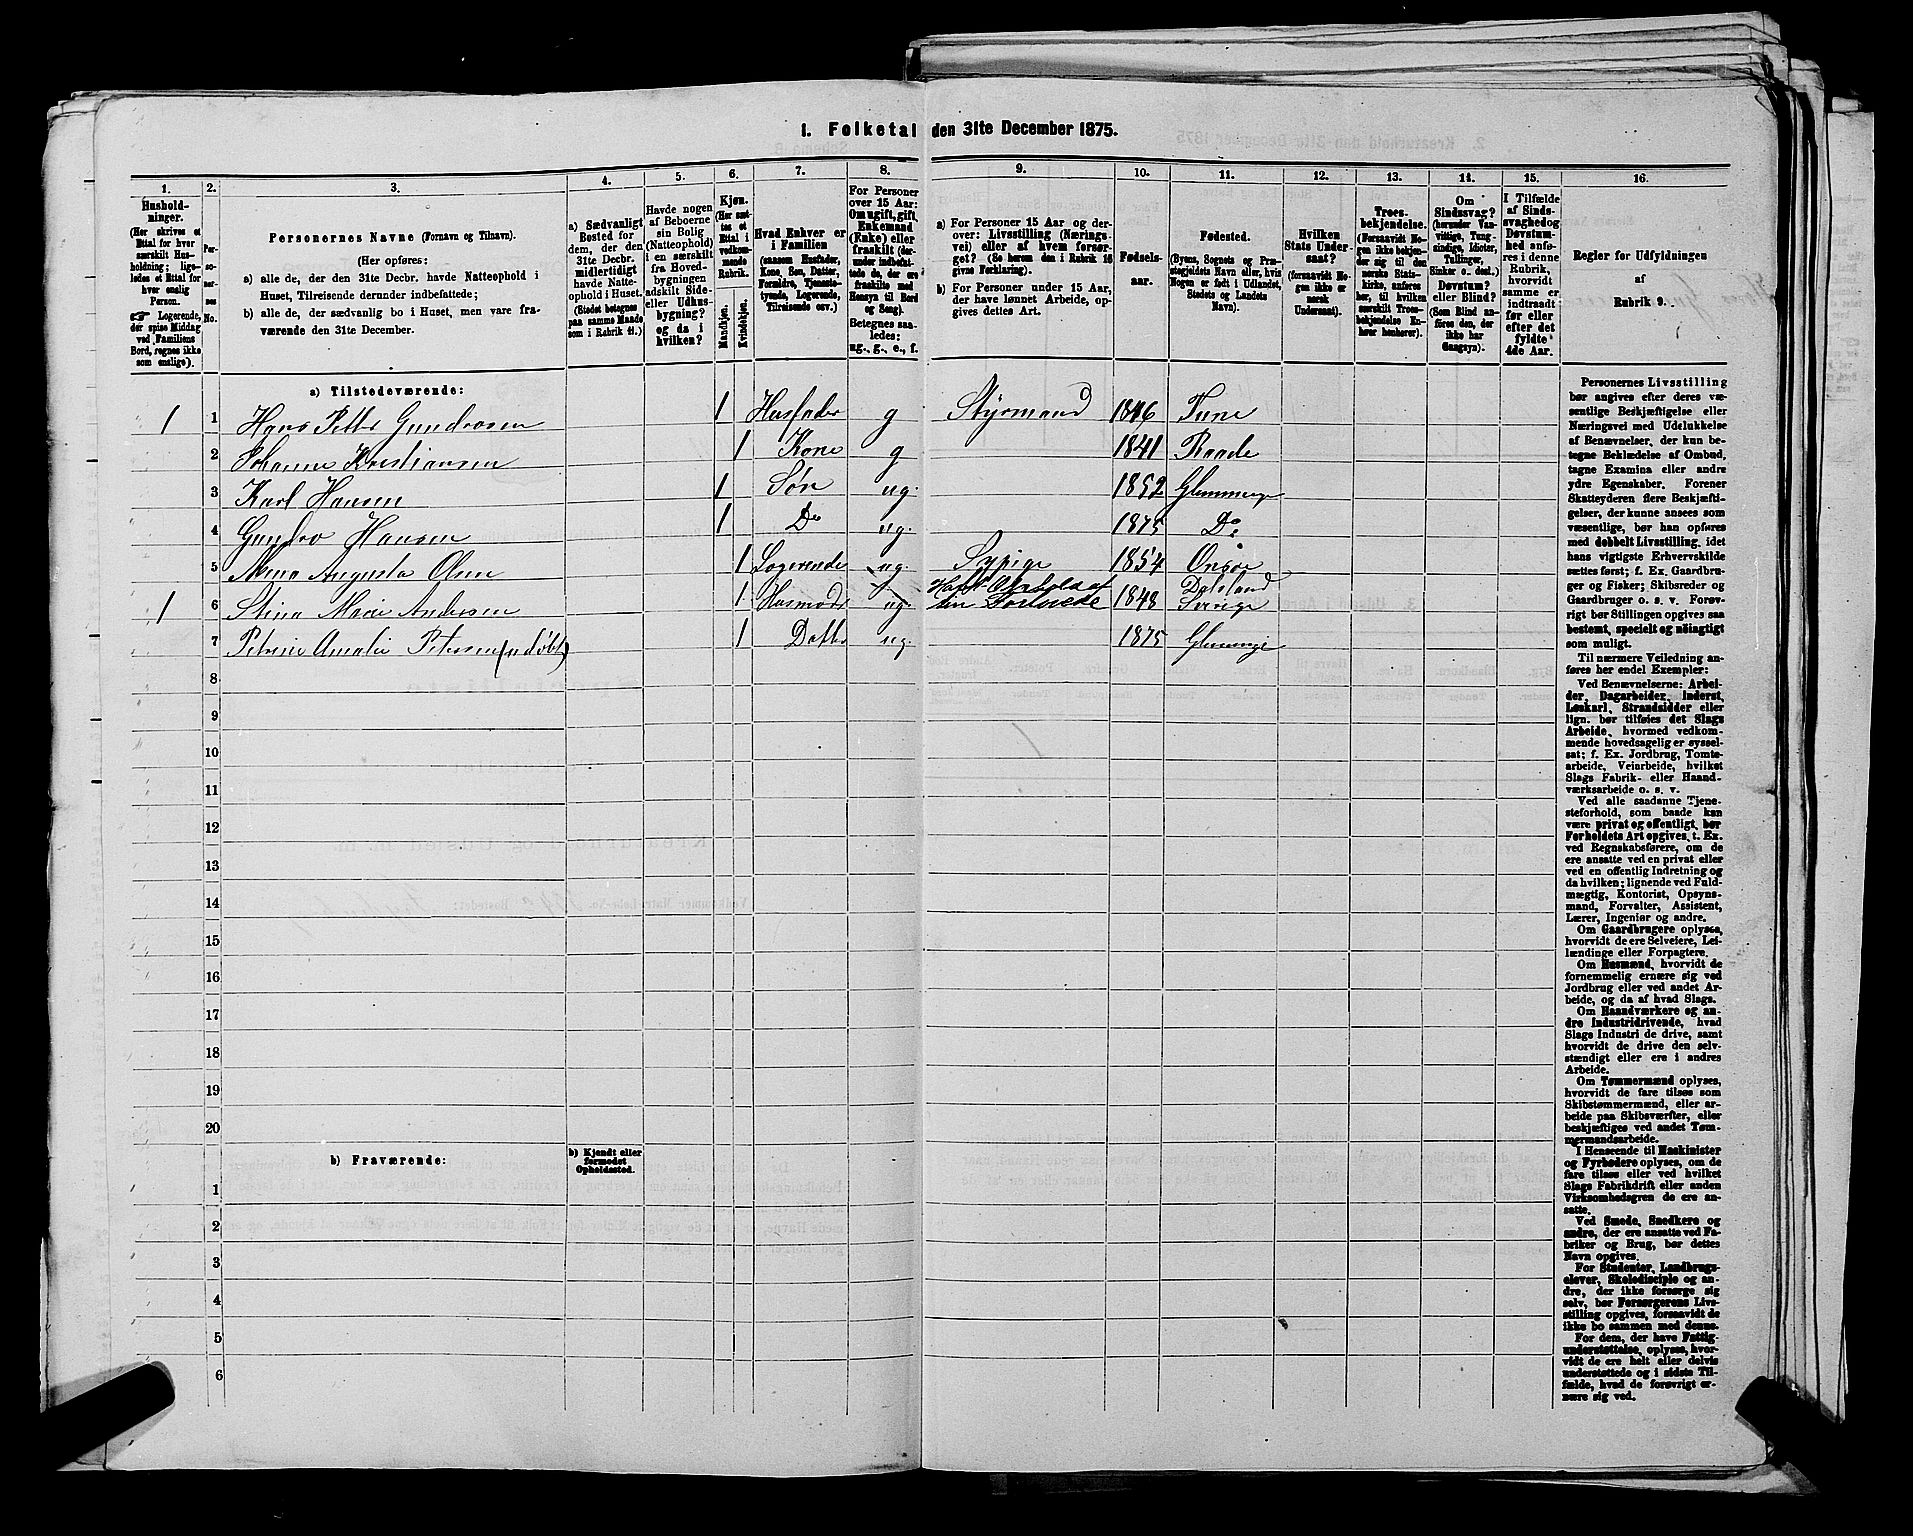 1. Folketal den 31te December 1875.
1.
Hushold-
ninger.
(Her skrives et
Ettal for hver
særskilt Hus-
holdning; lige-
ledes et Ettal for
hver enslig
Person.
☞ Logerende,
der spise Middag
ved Familiens
Bord, regnes ikke
som enslige).
2.
Per-
so-
ner-
nes
No.
3.
Personernes Navne (Fornavn og Tilnavn).
(Her opføres:
a) alle de, der den 31te Decbr. havde Natteophold i
Huset, Tilreisende derunder indbefattede;
b) alle de, der sædvanlig bo i Huset, men vare fra-
værende den 31te December.
4.
a) Sædvanligt
Bosted for
dem, der den
31te Decbr.
midlertidigt
havde Natte-
ophold i Huset.
(Stedet betegnes
paa samme Maade
som i Rubrik 11.)
5.
Havde nogen
af Beboerne
sin Bolig
(Natteophold)
i en særskilt
fra Hoved-
bygningen
adskilt Side-
eller Udhus-
bygning?
og da i
hvilken?
6.
Kjøn.
(Her sæt-
tes et
Ettal i
vedkom-
mende
Rubrik.
Mandkjøn.
Kvindekjøn.
7.
Hvad Enhver er
i Familien
(saasom Husfader,
Kone, Søn, Datter,
Forældre, Tjeneste-
tyende, Logerende,
Tilreisende osv.)
8.
For Personer
over 15 Aar:
Om ugift, gift,
Enkemand
(Enke) eller
fraskilt (der-
under indbefat-
tede de, der ere
fraskilte med
Hensyn til Bord
og Seng).
Betegnes saa-
ledes:
ug., g., e., f.
9.
a) For Personer 15 Aar og der-
over: Livsstilling (Nærings-
vei) eller af hvem forsør-
get? (Se herom den i Rubrik 16
givne Forklaring).
b) For Personer under 15 Aar,
der have lønnet Arbeide, op-
gives dettes Art.
10.
Fødsels-
aar.
11.
Fødested.
(Byens, Sognets og Præ-
stegjeldets Navn eller, hvis
Nogen er født i Udlandet,
Stedets og Landets
Navn).
12.
Hvilken
Stats Under-
saat?
(forsaavidt No-
gen ikke er
norsk
Undersaat).
13.
Troes-
bekjendelse.
(Forsaavidt No-
gen ikke bekjen-
der sig til den
norske Stats-
kirke, anføres
her, til hvilken
særskilt Troes-
bekjendelse En-
hver henhører).
14.
Om
Sindssvag?
(herunder Van-
vittige, Tung-
sindige, Idioter,
Tullinger,
Sinker o. desl.)
Døvstum?
eller Blind?
(Som Blind an-
føres den, der
ikke har
Gangsyn).
15.
I Tilfælde
af Sinds-
svaghed og
Døvstum-
hed anfø-
res i denne
Rubrik,
hvorvidt
samme er
indtraadt
før eller
efter det
fyldte
4de Aar.
16.
Regler for Udfyldningen
af
Rubrik 9.
a) Tilstedeværende:
1 1 Hans Petter Gundersen 1 Husfader g Styrmand 1846 Tune
2 Johanne Kristiansen 1 Kone g 1841 Raade
3 Karl Hansen 1 Søn ug. 1852 Glemminge
4 Hansen 1 Do ug. 1875 Do
5 Augusta Olsen 1 Logerende ug. Sypige 1854 Onsøe
1 6 Stina Marie Andersen 1 Husmoder ug. 1848 Dalsland Sverige
7 Petrine Amalie Petersen (udøbt) 1 Datter ug. 1875 Glemminge
8
9
10
11
12
13
14
15
16
17
18
19
20
b) Fraværende:
b) Kjendt eller
formodet
Opholdssted.
1
2
3
4
5
6
Personernes Livsstilling
bør angives efter deres væ-
sentlige Beskjæftigelse eller
Næringsvei med Udelukkelse
af Benævnelser, der kun be-
tegne Beklædelse af Ombud,
tagne Examina eller andre
ydre Egenskaber. Forener
Skatteyderen flere Beskjæfti-
gelser, der kunne ansees som
væsentlige, bør han opføres
med dobbelt Livsstilling, idet
hans vigtigste Erhvervskilde
sættes først; f. Ex. Gaardbru-
ger og Fisker; Skibsreder og
Gaardbruger o. s. v. Forøv-
rigt bør Stillingen opgives saa
bestemt, specielt og nøiagtigt
som muligt.
Til nærmere Veiledning an-
føres her endel Exempler:
Ved Benævnelserne: Arbei-
der, Dagarbeider, Inderst,
Løskarl, Strandsidder eller
lign. bør tilføies det Slags
Arbeide, hvormed vedkom-
mende hovedsagelig er syssel-
sat; f. Ex. Jordbrug, Tomte-
arbeide, Veiarbeide, hvilket
Slags Fabrik- eller Haand-
værksarbeide o. s. v.
Ved alle saadanne Tjene-
steforhold, som baade kan
være privat og offentligt, bør
Forholdets Art opgives, t. Ex.
ved Regnskabsførere, om de
ere ansatte ved en privat eller
ved en offentlig Indretning og
da hvilken; lignende ved Fuld-
mægtig, Kontorist, Opsyns-
mand, Forvalter, Assistent,
Lærer, Ingeniør og andre.
Om Gaardbrugere oplyses,
hvorvidt de ere Selveiere, Lei-
lændinge eller Forpagtere.
Om Husmænd, hvorvidt de
fornemmelig ernære sig ved
Jordbrug eller ved andet Ar-
beide, og da af hvad Slags.
Om Haandværkere og an-
dre Industridrivende, hvad
Slags Industri de drive, samt
hvorvidt de drive den selv-
stændigt eller ere i andres
Arbeide.
Om Tømmermænd oplyses,
hvorvidt de fare tilsøs som
Skibstømmermænd, eller ar-
beide paa Skibsværfter, eller
beskjæftiges ved andet Tøm-
mermandsarbeide.
I Henseende til Maskinister
og Fyrbødere oplyses, om de
fare tilsøs eller ved hvilket
Slags Fabrikdrift eller anden
Virksomhedsgren de ere an-
satte.
Ved Smede, Snedkere og
andre, der ere ansatte ved Fa-
briker og Brug, bør dettes
Navn opgives.
For Studenter, Landbrugs-
elever, Skoledisciple og an-
dre, der ikke forsørge sig
selv, bør Forsørgerens Livs-
stilling opgives, forsaavidt de
ikke bo sammen med denne.
For dem, der have Fattig-
understøttelse, oplyses, hvor-
vidt de ere helt eller delvis
understøttede og i sidste Til-
fælde, hvad de forøvrigt er-
nære sig ved.